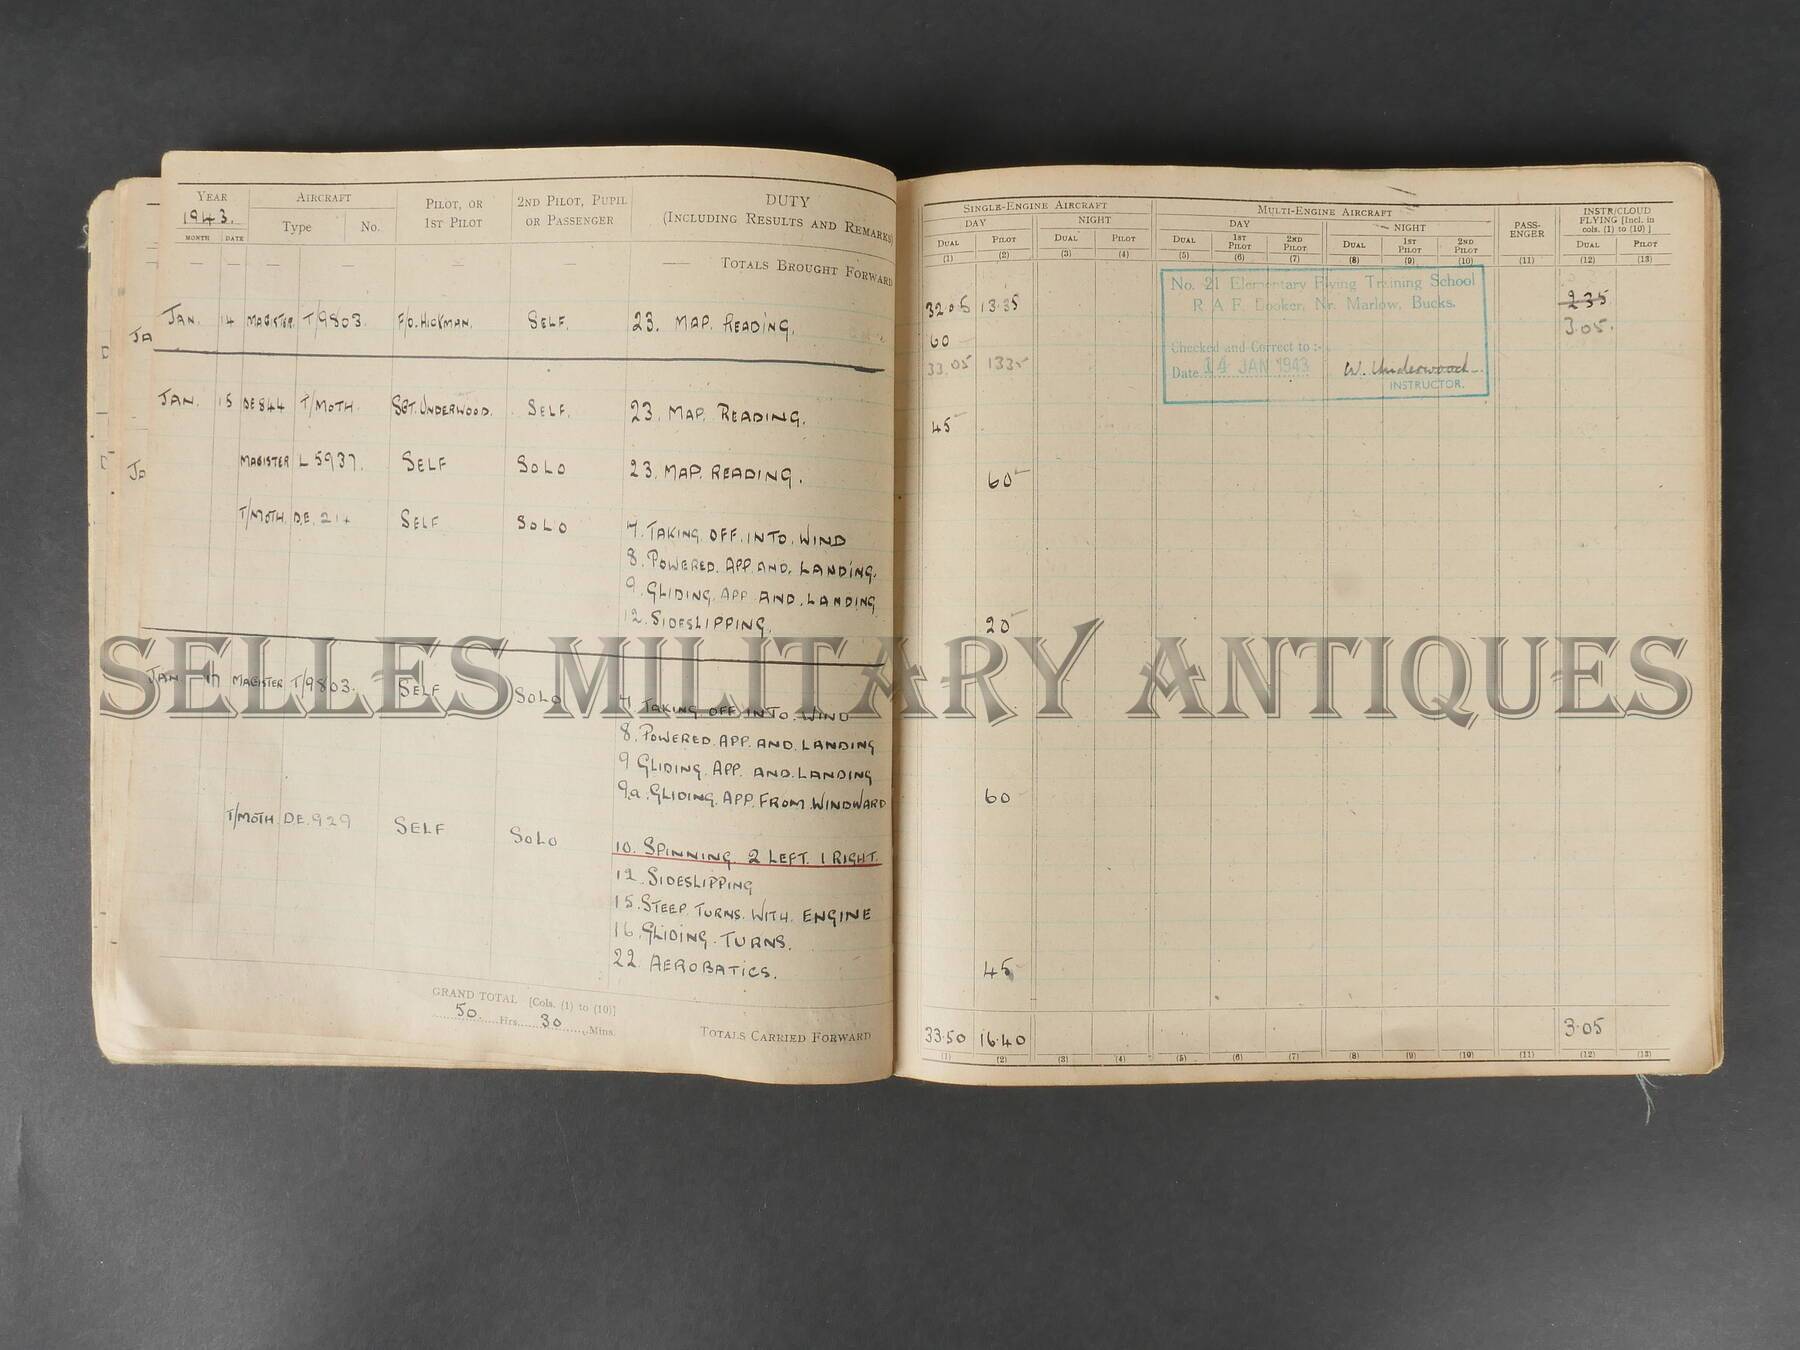 YEAR AIRCRAFT PILOT, OR 1ST PILOT 2ND PILOT, PUPIL OR PASSENGER DUTY (INCLUDING RESULTS AND REMARKS)
1943. Type No.
MONTH DATE
— — — — — — TOTALS BROUGHT FORWARD
JAN. 14 MAGISTER T/9803. F/O. HICKMAN. SELF. 23. MAP. READING.
JAN. 15 DE 844 T/MOTH. SGT. UNDERWOOD. SELF. 23. MAP. READING.
MAGISTER L 5937. SELF SOLO 23. MAP. READING.
T/MOTH. DE. 214 SELF SOLO 7. TAKING. OFF. INTO. WIND
8. POWERED. APP. AND. LANDING.
9. GLIDING. APP AND. LANDING
12. SIDESLIPPING.
JAN 17 MAGISTER T/9803. SELF SOLO 7 TAKING OFF INTO. WIND
8. POWERED. APP. AND. LANDING
9 GLIDING. APP. AND. LANDING
9a. GLIDING. APP. FROM. WINDWARD
T/MOTH DE. 929 SELF SOLO 10. SPINNING. 2 LEFT. 1 RIGHT.
12. SIDESLIPPING
15. STEEP. TURNS. WITH. ENGINE
16. GLIDING. TURNS.
22. AEROBATICS.
GRAND TOTAL [Cols. (1) to (10)]
50 Hrs. 30 Mins.
TOTALS CARRIED FORWARD
JA
JA
SINGLE-ENGINE AIRCRAFT MULTI-ENGINE AIRCRAFT PASS-ENGER INSTR/CLOUD FLYING [Incl. in cols. (1) to (10)]
DAY NIGHT DAY NIGHT
DUAL PILOT DUAL PILOT DUAL 1ST PILOT 2ND PILOT DUAL 1ST PILOT 2ND PILOT DUAL PILOT
(1) (2) (3) (4) (5) (6) (7) (8) (9) (10) (11) (12) (13)
No. 21 Elementary Flying Training School
R A F. Booker, Nr. Marlow, Bucks.
Checked and Correct to :-
Date 14 JAN 1943 W. Underwood
INSTRUCTOR.
32.05 13.35 2.35
60 3.05.
33.05 1335
45
60
20
60
45
33.50 16.40 3.05
(1) (2) (3) (4) (5) (6) (7) (8) (9) (10) (11) (12) (13)
SELLES MILITARY ANTIQUES